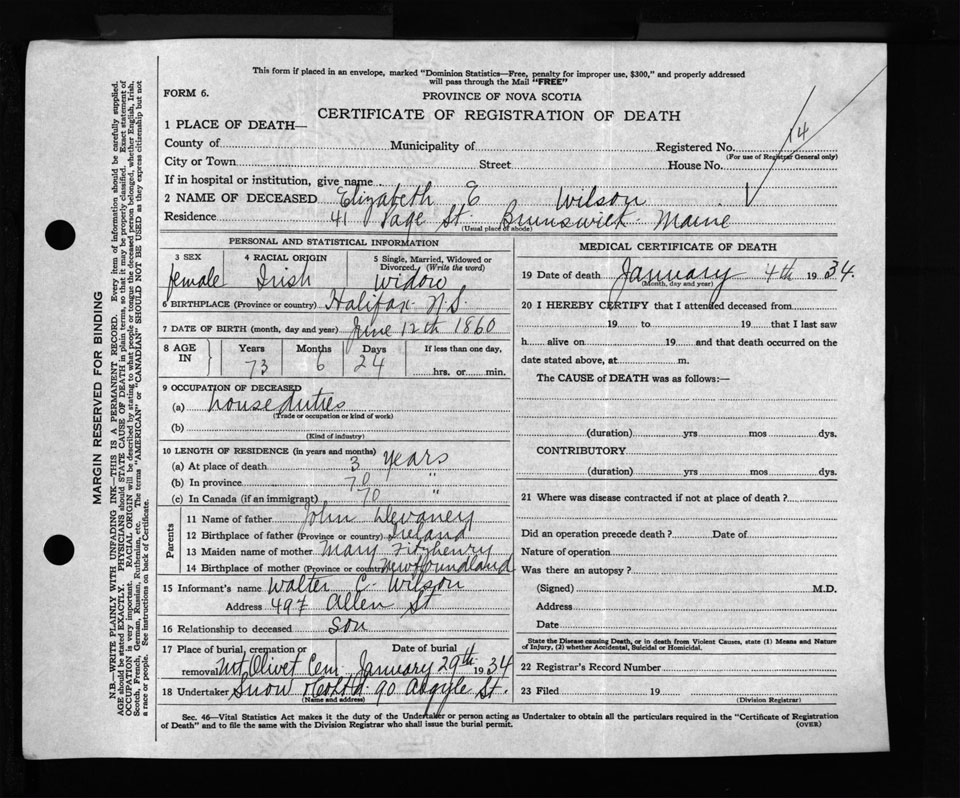 This form if placed in an envelope, marked "Dominion Statistics—Free, penalty for improper use, $300," and properly addressed
will pass through the Mail "FREE"
FORM 6.
PROVINCE OF NOVA SCOTIA
CERTIFICATE OF REGISTRATION OF DEATH
1 PLACE OF DEATH—
14
County of Municipality of Registered No.
(For use of Registrar General only)
City or Town Street House No.
If in hospital or institution, give name
2 NAME OF DECEASED Elizabeth E Wilson
Residence 41 Page St. Brunswick Maine
(Usual place of abode)
PERSONAL AND STATISTICAL INFORMATION
3 SEX 4 RACIAL ORIGIN 5 Single, Married, Widowed or
Divorced (Write the word)
female Irish widow
6 BIRTHPLACE (Province or country) Halifax N.S.
7 DATE OF BIRTH (month, day and year) June 12th 1860
8 AGE IN Years Months Days If less than one day,
73 6 24 hrs. or min.
9 OCCUPATION OF DECEASED
(a) house duties
(Trade or occupation or kind of work)
(b)
(Kind of industry)
10 LENGTH OF RESIDENCE (in years and months)
(a) At place of death 3 years
(b) In province 70 "
(c) In Canada (if an immigrant) 70 "
Parents
11 Name of father John Devaney
12 Birthplace of father (Province or country) Ireland
13 Maiden name of mother Mary Fitzhenry
14 Birthplace of mother (Province or country) Newfoundland
15 Informant's name Walter C. Wilson
Address Allen St
16 Relationship to deceased Son
17 Place of burial, cremation or Date of burial
removal Mt Olivet Cem. January 29th 1934
18 Undertaker Snow & Co Ltd. 90 Argyle St.
(Name and address)
MEDICAL CERTIFICATE OF DEATH
19 Date of death January 4th 1934.
(Month, day and year)
20 I HEREBY CERTIFY that I attended deceased from
19 to 19 that I last saw
h alive on 19 and that death occurred on the
date stated above, at m.
The CAUSE of DEATH was as follows:—
(duration) yrs mos dys.
CONTRIBUTORY
(duration) yrs mos dys.
21 Where was disease contracted if not at place of death?
Did an operation precede death? Date of
Nature of operation
Was there an autopsy?
(Signed) M.D.
Address
Date
State the Disease causing Death, or in death from Violent Causes, state (1) Means and Nature
of Injury, (2) whether Accidental, Suicidal or Homicidal.
22 Registrar's Record Number
23 Filed 19
(Division Registrar)
Sec. 46—Vital Statistics Act makes it the duty of the Undertaker or person acting as Undertaker to obtain all the particulars required in the "Certificate of Registration
of Death" and to file the same with the Division Registrar who shall issue the burial permit. (OVER)
MARGIN RESERVED FOR BINDING
N.B.—WRITE PLAINLY WITH UNFADING INK—THIS IS A PERMANENT RECORD. Every item of information should be carefully supplied.
AGE should be stated EXACTLY. PHYSICIANS should STATE CAUSE OF DEATH in plain terms, so that it may be properly classified. Exact statement of
OCCUPATION is very important. RACIAL ORIGIN will be described by stating to what people or tongue the deceased person belonged, whether English, Irish,
Scotch, French, German, Russian, Ruthenian, etc. The terms "AMERICAN" or "CANADIAN" SHOULD NOT BE USED as they express citizenship but not
a race or people. See instructions on back of Certificate.